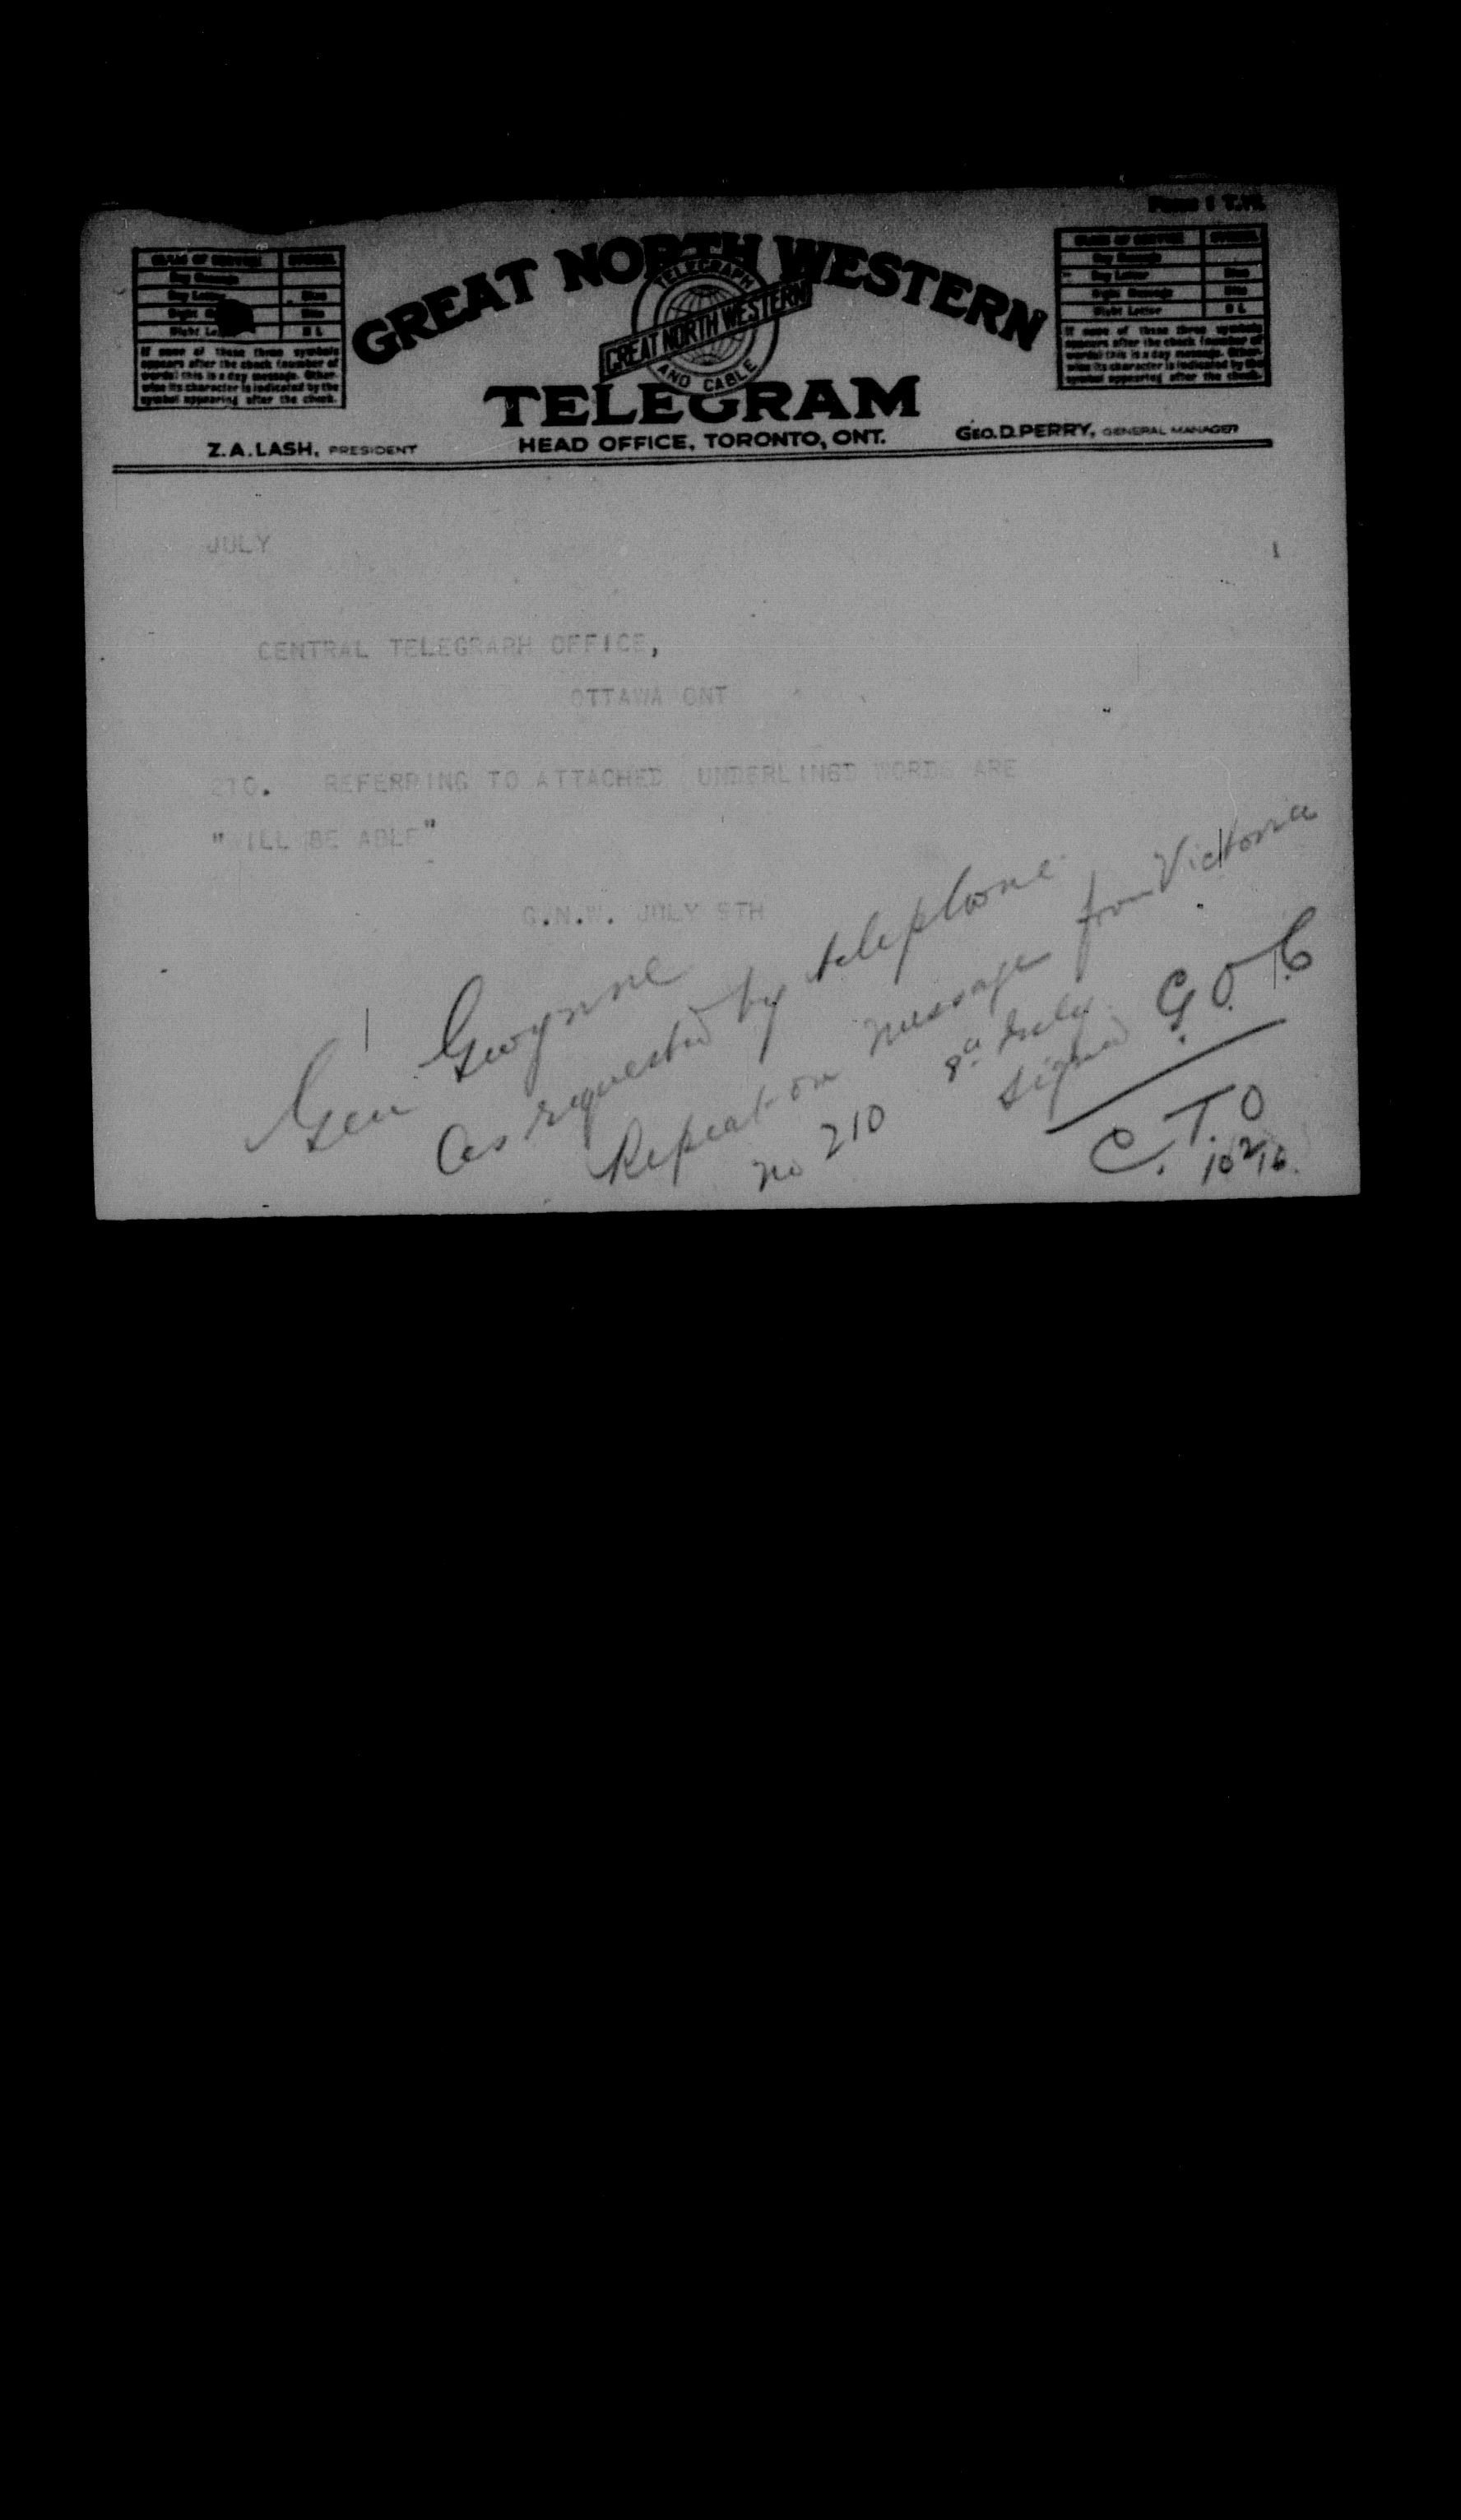 Form 1 T.W.
CLASS OF SERVICE SYMBOL
Day Message
Day Letter Blue
Night
Night Le N L
If none of these three symbols
appears after the check (number of
words) this is a day message. Other-
wise its character is indicated by the
symbol appearing after the check.
GREAT NORTH WESTERN
TELEGRAPH
GREAT NORTH WESTERN
AND CABLE
TELEGRAM
CLASS OF SERVICE SYMBOL
Day Message
Day Letter Blue
Night Message Nite
Night Letter N L
If none of these three symbols
appears after the check (number of
words) this is a day message. Other-
wise its character is indicated by the
symbol appearing after the check.
Z.A.LASH, PRESIDENT
HEAD OFFICE, TORONTO, ONT.
GEO.D.PERRY, GENERAL MANAGER
JULY
CENTRAL TELEGRAPH OFFICE,
OTTAWA ONT
210. REFERRING TO ATTACHED UNDERLINGD WORDS ARE
"WILL BE ABLE"
G.N.W. JULY 9TH
Gen Gwynne
As requested by telephone
Repeat on message from Victoria
no 210 8th July
signed G.O.C
C.T.O